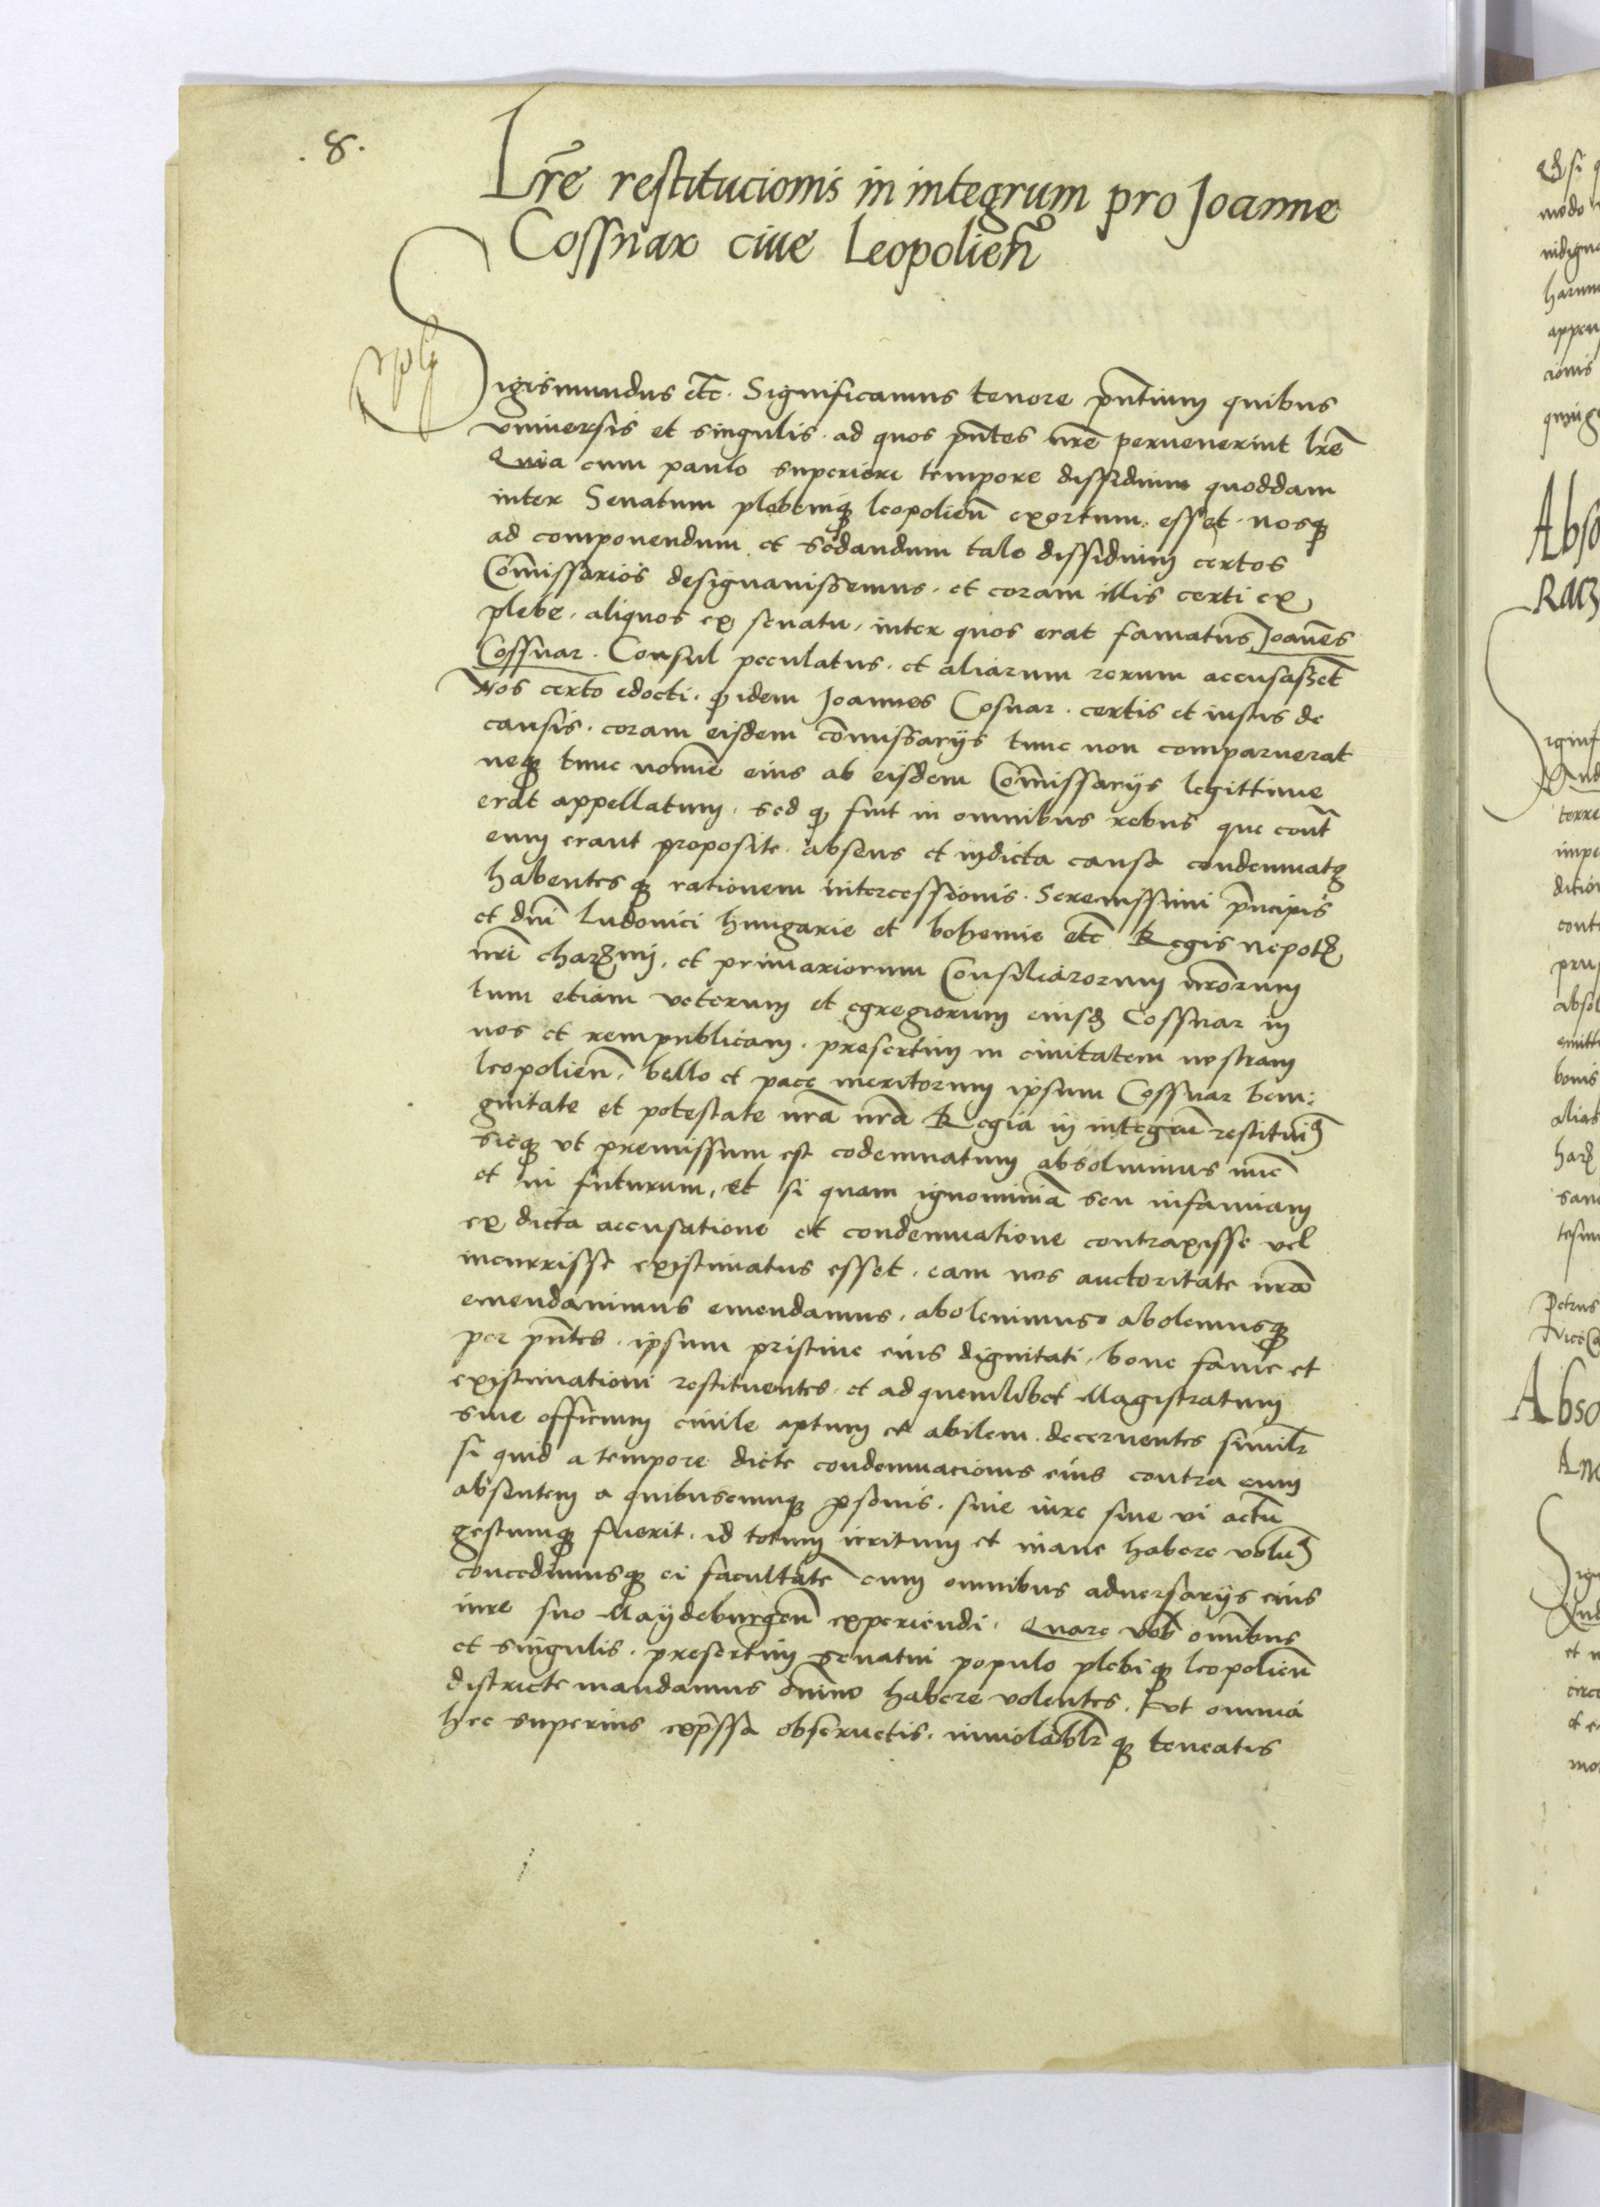 .8.
Lr̃e restitucionis in integrum pro Joanne
Cossnar ciue Leopolieñ
Sigismundus etc̃. Significamus tenore pñtium quibus
vniuersis et singulis. ad quos pñtes nrẽ peruenerint lrẽ
Quia cum paulo superiore tempore dissidium quoddam
inter Senatum plebemq; leopolieñ exortum esset. nosq;
ad componendum et sedandum tale dissidium certos
Com̃issarios designauissemus. et coram illis certi ex
plebe. aliquos ex senatu, inter quos erat famatus Joañes
Cossnar. Consul peculatus. et aliarum rerum accusassent̃
Nos certo edocti. q̃ idem Joannes Cosnar. certis et iustis de
causis. coram eisdem com̃issarijs tunc non comparuerat
neq; tunc nomẽ eius ab eisdem Com̃issarijs legittime
erat appellatum. sed q̃ fuit in omnibus rebus que cont̃
eum erant proposite. absens et indicta causa condemnatꝰ
habentesq; rationem intercessionis. Serenissimi pñcipis
et dñi Ludouici hungarie et bohemie etc̃ Regis nepotꝭ
nrĩ charꝫmi, et primariorum Consiliariorum nrõrum
tum etiam veterum et egregiorum eiusd̃ Cossnar in
nos et rempublicam. presertim in ciuitatem nostram
leopolieñ, bello et pace meritorum ipsum Cossnar beni:
gnitate et potestate nrã nrã Regia in integrũ restituiꝰ
sicq; vt premissum est codemnatum absoluimus nuñc
et in futurum, et si quam ignominiã seu infamiam
ex dicta accusatione et condemnatione contraxisse vel
incurrisse existimatus esset. eam nos auctoritate nrã
emendauimus emendamus, aboleuimus abolemusq;
per pñtes. ipsum pristine eius dignitati, bone fame et
existimationi restituentes. et ad quemlibet Magistratum
siue officium ciuile aptum et abilem. decernentes similr̃
si quid a tempore dicte condemnacionis eius contra eum
absentem a quibuscumq; p̃sonis. siue iure siue vi actũ
gestumq; fuerit. id totum irritum et inane habere volumꝰ
concedimusq; ei facultatẽ cum omnibus aduersarijs eius
iure suo Maydeburgeñ experiendi. Quare vob̃ om̃ibus
et singulis. presertim senatui populo plebiq; leopolieñ
districte mandamus om̃ino habere volentes. vt omnia
hec superius exp̃ssa obseruetis. inuiolablr̃q; teneatis